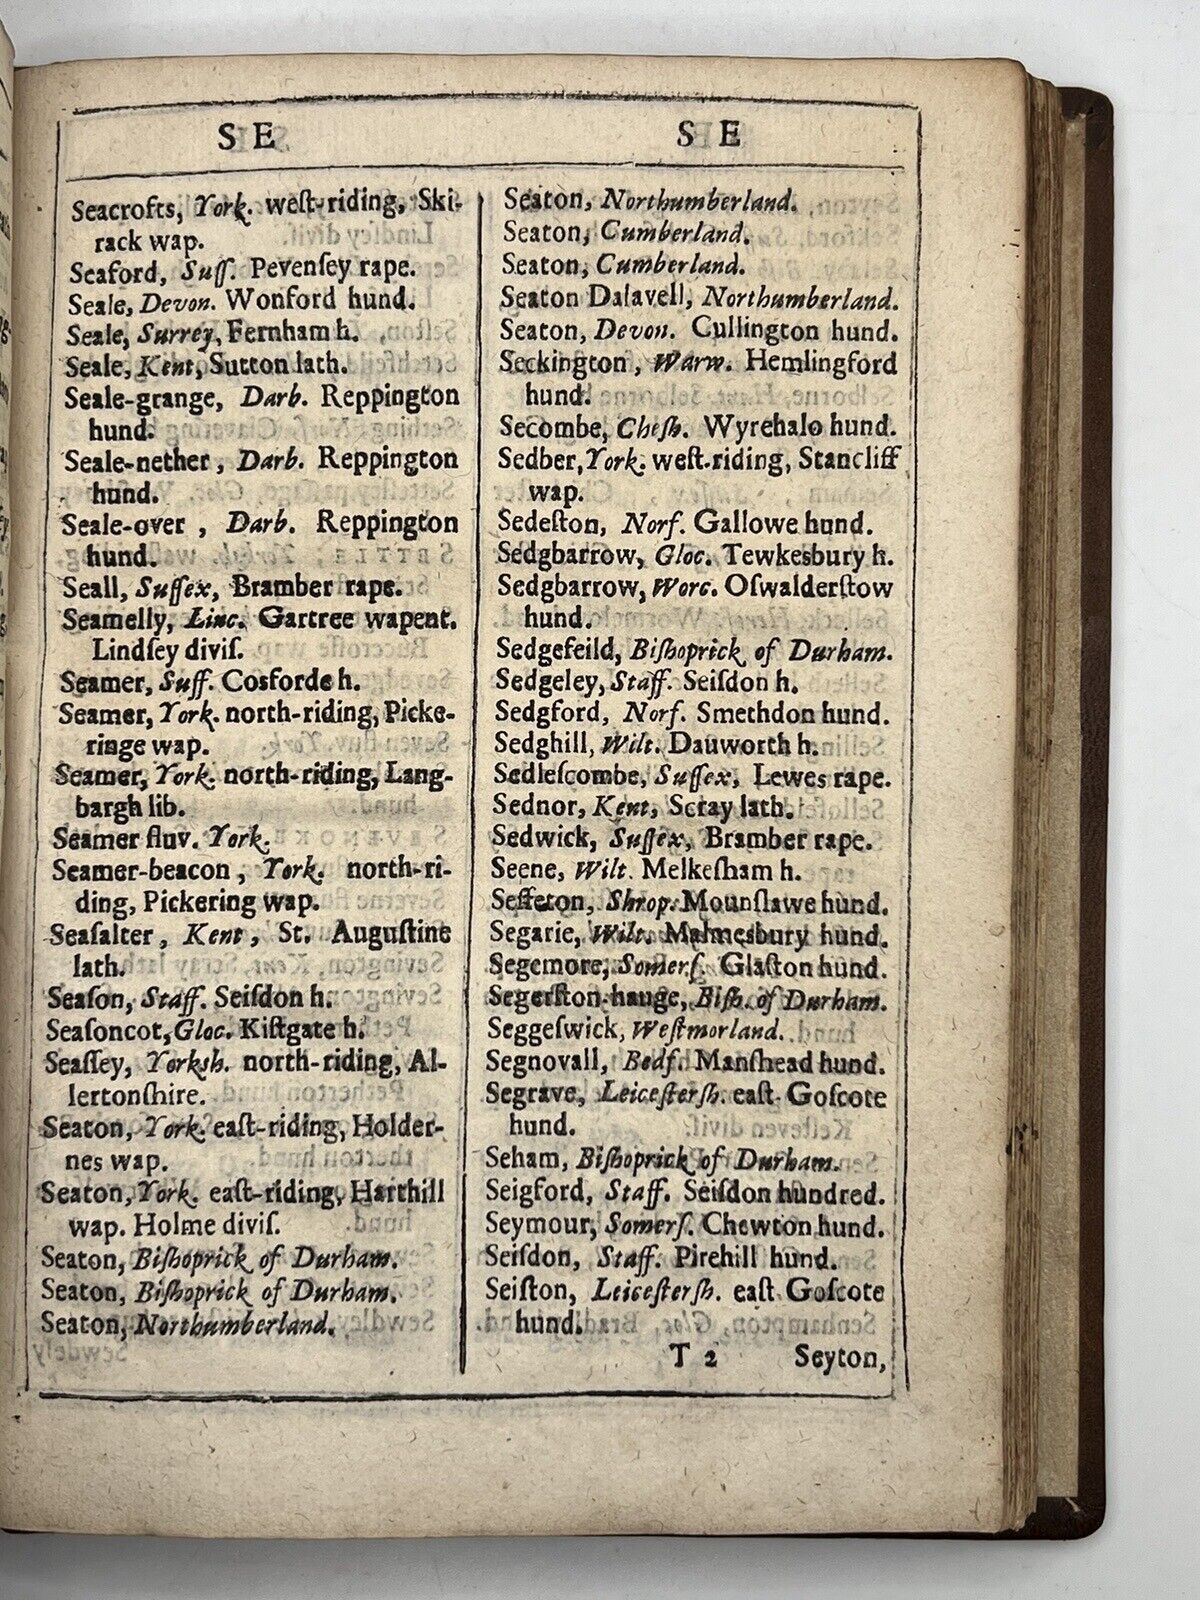 S E
Seacrofts, York. weſt-riding, Ski-
rack wap.
Seaford, Suſſ. Pevenſey rape.
Seale, Devon. Wonford hund.
Seale, Surrey, Fernham h.
Seale, Kent, Sutton lath.
Seale-grange, Darb. Reppington
hund.
Seale-nether, Darb. Reppington
hund.
Seale-over, Darb. Reppington
hund.
Seall, Suſſex, Bramber rape.
Seamelly, Linc. Gartree wapent.
Lindſey diviſ.
Seamer, Suff. Cosforde h.
Seamer, York. north-riding, Picke-
ringe wap.
Seamer, York. north-riding, Lang-
bargh lib.
Seamer fluv. York.
Seamer-beacon, York. north-ri-
ding, Pickering wap.
Seaſalter, Kent, St. Auguſtine
lath.
Seaſon, Staff. Seiſdon h.
Seaſoncot, Gloc. Kiftgate h.
Seaſſey, Yorksh. north-riding, Al-
lertonſhire.
Seaton, York. eaſt-riding, Holder-
nes wap.
Seaton, York. eaſt-riding, Harthill
wap. Holme diviſ.
Seaton, Biſhoprick of Durham.
Seaton, Biſhoprick of Durham.
Seaton, Northumberland.
S E
Seaton, Northumberland.
Seaton, Cumberland.
Seaton, Cumberland.
Seaton Dalavell, Northumberland.
Seaton, Devon. Cullington hund.
Seckington, Warw. Hemlingford
hund.
Secombe, Cheſh. Wyrehalo hund.
Sedber, York. weſt-riding, Stancliff
wap.
Sedeſton, Norf. Gallowe hund.
Sedgbarrow, Gloc. Tewkesbury h.
Sedgbarrow, Worc. Oſwalderſtow
hund.
Sedgefeild, Biſhoprick of Durham.
Sedgeley, Staff. Seiſdon h.
Sedgford, Norf. Smethdon hund.
Sedghill, Wilt. Dauworth h.
Sedleſcombe, Suſſex, Lewes rape.
Sednor, Kent, Scray lath.
Sedwick, Suſſex, Bramber rape.
Seene, Wilt. Melkeſham h.
Seffeton, Shrop. Mounſlawe hund.
Segarie, Wilt. Malmesbury hund.
Segemore, Somerſ. Glaſton hund.
Segerſton-hauge, Biſh. of Durham.
Seggeſwick, Weſtmorland.
Segnovall, Bedf. Manshead hund.
Segrave, Leiceſterſh. eaſt Goſcote
hund.
Seham, Biſhoprick of Durham.
Seigford, Staff. Seiſdon hundred.
Seymour, Somerſ. Chewton hund.
Seiſdon, Staff. Pirehill hund.
Seiſton, Leiceſterſh. eaſt Goſcote
hund.
T 2 Seyton,